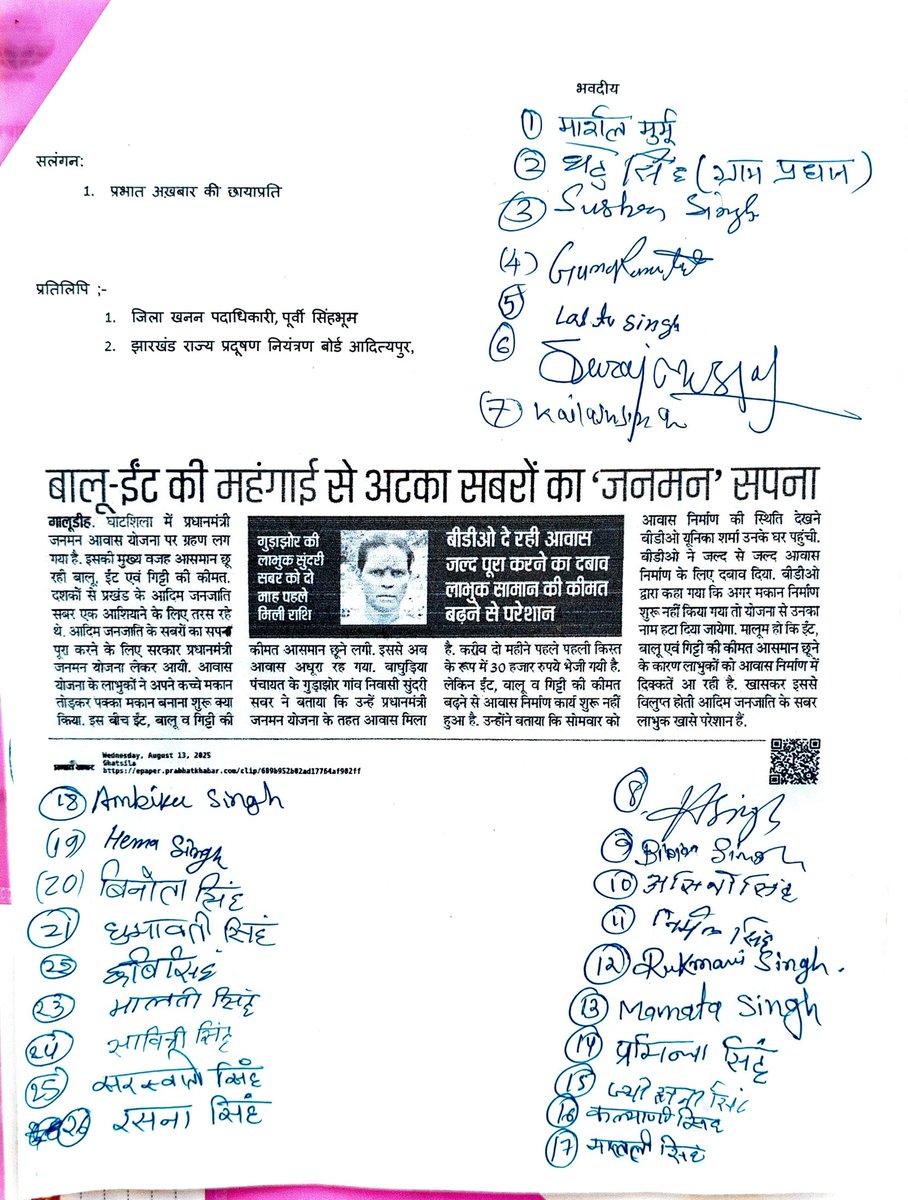 भवदीय
① मार्शल मुर्मू
सलंगन:
② सिंह (ग्राम प्रधान)
1. प्रभात अख़बार की छायाप्रति
③ Sushen Singh
(4)
प्रतिलिपि ;-
⑤ Singh
1. जिला खनन पदाधिकारी, पूर्वी सिंहभूम
2. झारखंड राज्य प्रदूषण नियंत्रण बोर्ड आदित्यपुर,
⑥
⑦
बालू-ईंट की महंगाई से अटका सबरों का ‘जनमन’ सपना
गालूडीह. घाटशिला में प्रधानमंत्री
जनमन आवास योजना पर ग्रहण लग
गया है. इसकी मुख्य वजह आसमान छू
रही बालू, ईंट एवं गिट्टी की कीमत.
दशकों से प्रखंड के आदिम जनजाति
सबर एक आशियाने के लिए तरस रहे
थे. आदिम जनजाति के सबरों का सपना
पूरा करने के लिए सरकार प्रधानमंत्री
जनमन योजना लेकर आयी. आवास
योजना के लाभुकों ने अपने कच्चे मकान
तोड़कर पक्का मकान बनाना शुरू क्या
किया. इस बीच ईंट, बालू व गिट्टी की
गुड़ाझोर की
लाभुक सुंदरी
सबर को दो
माह पहले
मिली राशि
बीडीओ दे रही आवास
जल्द पूरा करने का दबाव
लाभुक सामान की कीमत
बढ़ने से परेशान
कीमत आसमान छूने लगी. इससे अब
आवास अधूरा रह गया. बाघुड़िया
पंचायत के गुड़ाझोर गांव निवासी सुंदरी
सबर ने बताया कि उन्हें प्रधानमंत्री
जनमन योजना के तहत आवास मिला
है. करीब दो महीने पहले पहली किस्त
के रूप में 30 हजार रुपये भेजी गयी है.
लेकिन ईंट, बालू व गिट्टी की कीमत
बढ़ने से आवास निर्माण कार्य शुरू नहीं
हुआ है. उन्होंने बताया कि सोमवार को
आवास निर्माण की स्थिति देखने
बीडीओ यूनिका शर्मा उनके घर पहुंची.
बीडीओ ने जल्द से जल्द आवास
निर्माण के लिए दबाव दिया. बीडीओ
द्वारा कहा गया कि अगर मकान निर्माण
शुरू नहीं किया गया तो योजना से उनका
नाम हटा दिया जायेगा. मालूम हो कि ईंट,
बालू एवं गिट्टी की कीमत आसमान छूने
के कारण लाभुकों को आवास निर्माण में
दिक्कतें आ रही है. खासकर इससे
विलुप्त होती आदिम जनजाति के सबर
लाभुक खासे परेशान हैं.
प्रभात खबर
Wednesday, August 13, 2025
Ghatsila
https://epaper.prabhatkhabar.com/clip/689b952b02ad17764af902ff
⑧ Singh
⑨ Singh
⑩ सिंह
⑪ सिंह
⑫ Rukmani Singh.
⑬ Mamata Singh
⑭ प्रमिला सिंह
⑮ सिंह
⑯ कल्याणी सिंह
⑰ मालती सिंह
⑱ Ambika Singh
(19) Hema Singh
(20) बिनोता सिंह
㉑ धुमावती सिंह
㉕ सिंह
㉓ मालती सिंह
㉔ सावित्री सिंह
㉕ सरस्वती सिंह
㉖ रसना सिंह